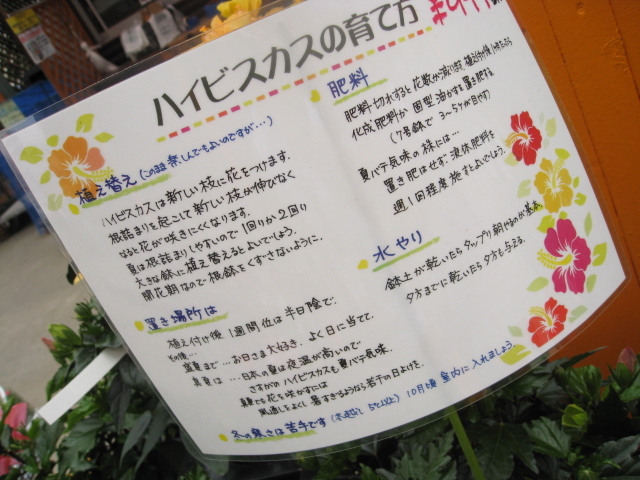 ハイビスカスの育て方
植え替え(このまま楽しんでもよいのですが…)
ハイビスカスは新しい枝に花をつけます。
根詰まりを起こして新しい枝が伸びなく
なると花が咲きにくくなります。
夏は根詰まりしやすいので1回りか2回り
大きな鉢に植え替えるとよいでしょう。
開花期なので根鉢をくずさないように。
置き場所は
植え付け後1週間位は半日陰で。
その後…
盛夏まで…お日さま大好き。よく日に当てて。
真夏は…日本の夏は夜温が高いので
さすがのハイビスカスも夏バテ気味。
真夏でも花を咲かすには
風通しをよくし暑すぎるようなら若干の日よけを。
冬の寒さは苦手です(木越して5℃以上)10月頃室内に入れましょう。
肥料
肥料切れすると花数が減ります
化成肥料か固型油かすを置き肥する
(7号鉢で3〜5ケが目やす)
夏バテ風味の株には…
置き肥はせず液体肥料を
週1回程度施すとよいでしょう。
水やり
鉢土が乾いたらタップリ朝やるのが基本。
夕方までに乾いたら夕方も与える。